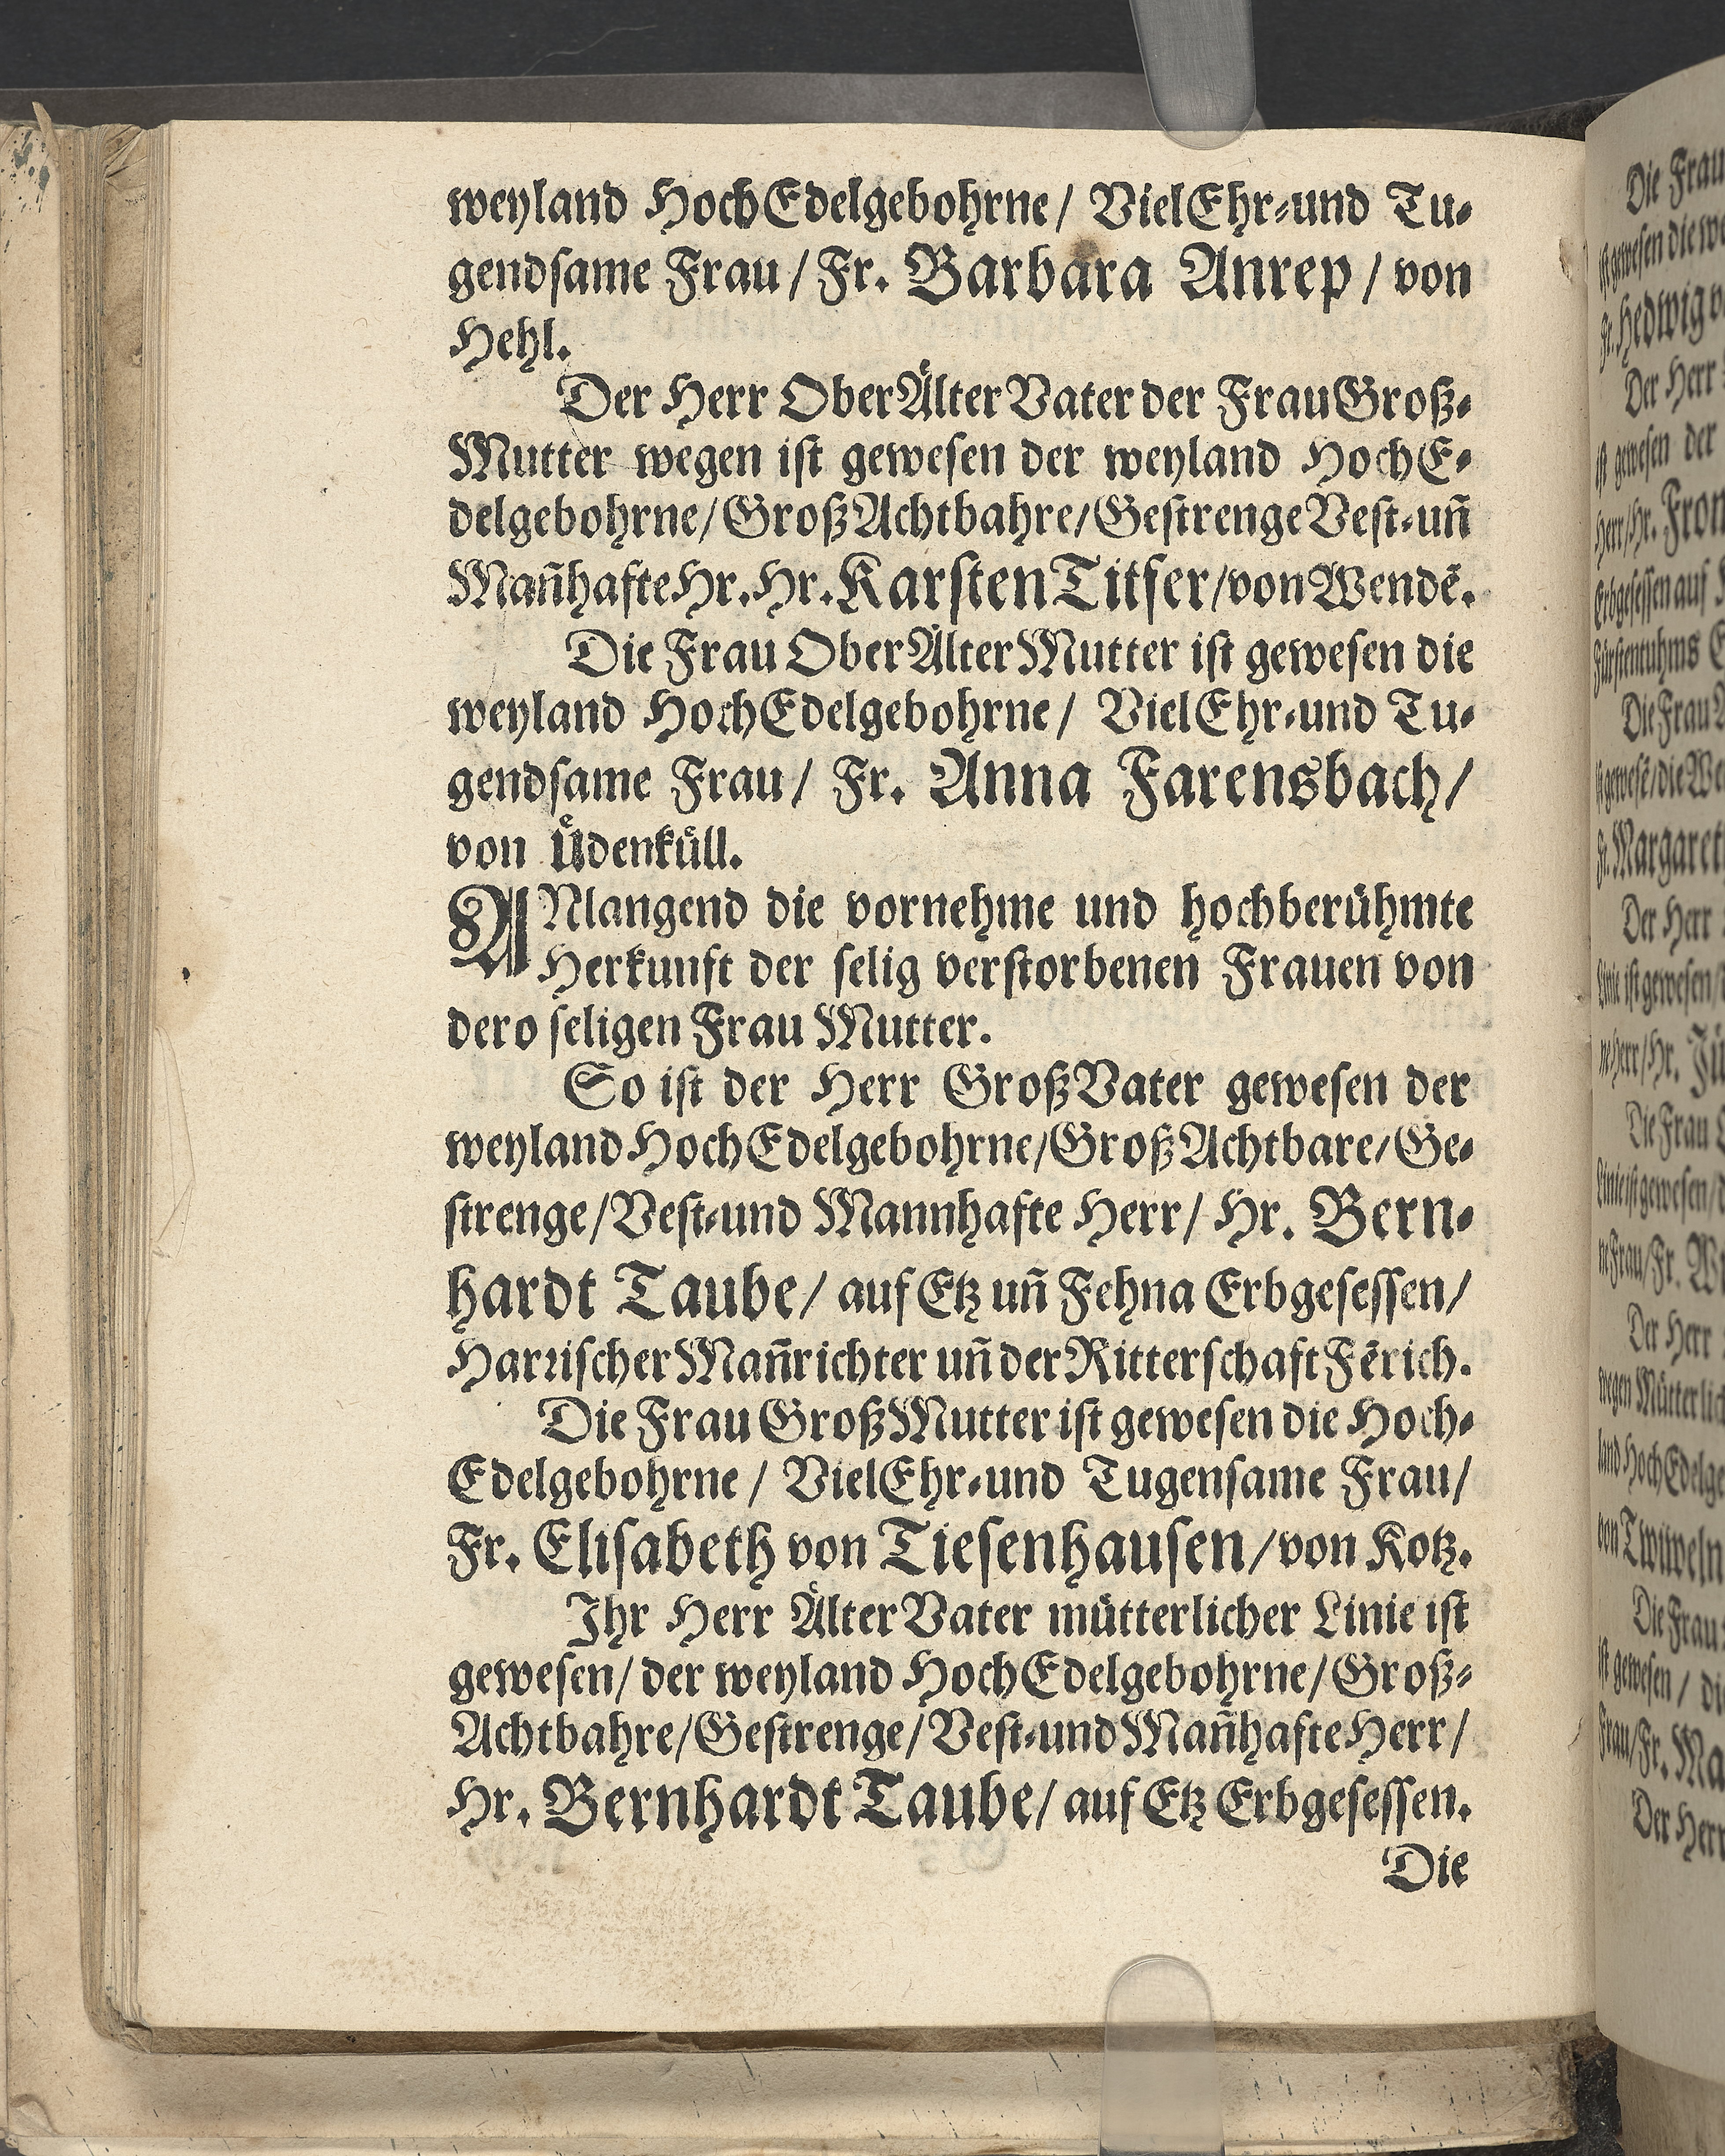 weyland HochEdelgebohrne/ VielEhr-und Tu-
gendsame Frau/ Fr. Barbara Anrep/ von
Hehl.
Der Herr OberÄlterVater der FrauGroß-
Mutter wegen ist gewesen der weyland HochE-
delgebohrne/GroßAchtbahre/GestrengeVest-uñ
MañhafteHr.Hr.KarstenTitfer/vonWendẽ.
Die Frau OberÄlterMutter ist gewesen die
weyland HochEdelgebohrne/ VielEhr-und Tu-
gendsame Frau/ Fr. Anna Farensbach/
von Üdenküll.
ANlangend die vornehme und hochberühmte
Herkunft der selig verstorbenen Frauen von
dero seligen Frau Mutter.
So ist der Herr GroßVater gewesen der
weyland HochEdelgebohrne/GroßAchtbare/Ge-
strenge/Vest-und Mannhafte Herr/ Hr. Bern-
hardt Taube/ auf Etz uñ Fehna Erbgesessen/
HarrischerMañrichter uñ derRitterschaftFẽrich.
Die Frau GroßMutter ist gewesen die Hoch-
Edelgebohrne/ VielEhr-und Tugensame Frau/
Fr. Elisabeth von Tiesenhausen/von Kotz.
Ihr Herr ÄlterVater mütterlicher Linie ist
gewesen/ der weyland HochEdelgebohrne/Groß-
Achtbahre/Gestrenge/Vest-und MañhafteHerr/
Hr. Bernhardt Taube/ auf Etz Erbgesessen.
Die
Die Frau
ist gewesen die we
Fr. Hedwig v
Der Herr
ist gewesen der
Herr/Hr. From
Erbgesessen auf
Fürstentuhms
Die Frau
ist gewesẽ/die We
Fr. Margaret
Der Herr
Linie ist gewesen/
ne Herr/Hr. Jü
Die Frau
Linie ist gewesen/d
ne Frau/Fr. W
Der Herr
wegen Mütterlich
land HochEdelge
von Twiweln
Die Frau
ist gewesen/ di
Frau/Fr. Ma
Der Herr